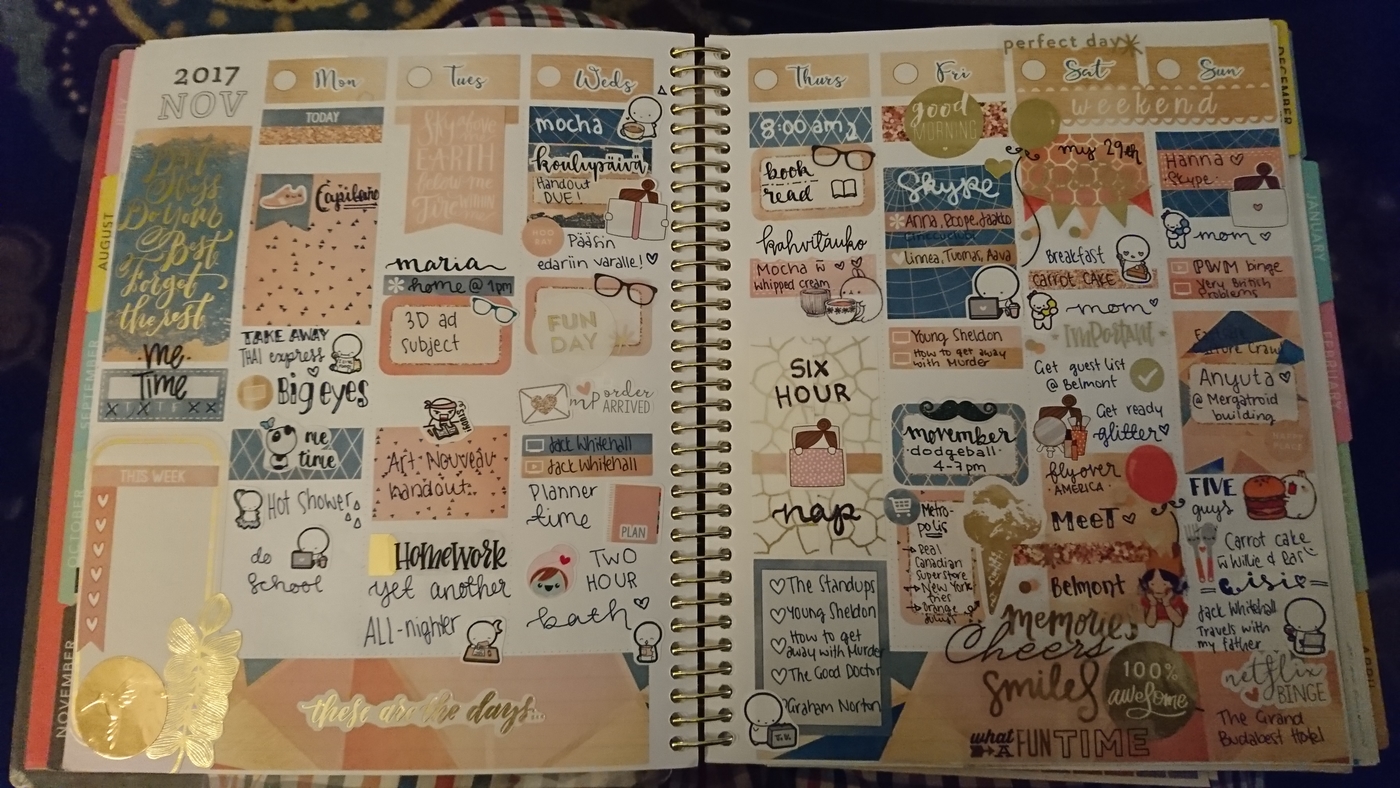 2017
NOV
Do Your
Best
Forget
the rest
me
Time
THIS WEEK
Mon
TODAY
Capilano
TAKE AWAY
THAI express
Big eyes
me
time
Hot Shower
do
School
Tues
EARTH
below me
Fire within
maria
home @ 1pm
3D ad
subject
Art Nouveau
handout
HOMEWORK
yet another
ALL-nighter
Weds
mocha
koulupäivä
Handout
DUE!
HOORAY
Pääsin
edariin varalle!
FUN
DAY
MP order
ARRIVED
Jack Whitehall
Jack Whitehall
Planner
time
PLAN
TWO
HOUR
bath
these are the days...
Thurs
8:00 am
book
read
kahvitauko
Mocha w̄
whipped cream
SIX
HOUR
nap
The Standups
Young Sheldon
How to get
away with Murder
The Good Doctor
Graham Norton
Fri
good
MORNING
Skype
Anna, Roope, Jaakko
Linnea, Tuomas, Aava
Young Sheldon
How to get away
with Murder
movember
dodgeball
4-7pm
Metro-
polis
Real
Canadian
Superstore
New York
fries
Orange
Julius
perfect day
Sat
Sun
weekend
my 29th
Breakfast
CARROT CAKE
mom
Important
Get guest list
@ Belmont
Get ready
glitter
flyover
AMERICA
MeeT
Belmont
memories
Cheers
smiles
100%
awesome
what
A FUN TIME
Hanna
Skype
mom
PWM binge
Very British
Problems
Anyuta
@ Mergatroid
building
FIVE
guys
Carrot cake
w̄ Willie &
Jack Whitehall
Travels with
my father
netflix
BINGE
The Grand
Budabest Hotel
AUGUST
SEPTEMBER
OCTOBER
NOVEMBER
DECEMBER
JANUARY
FEBRUARY